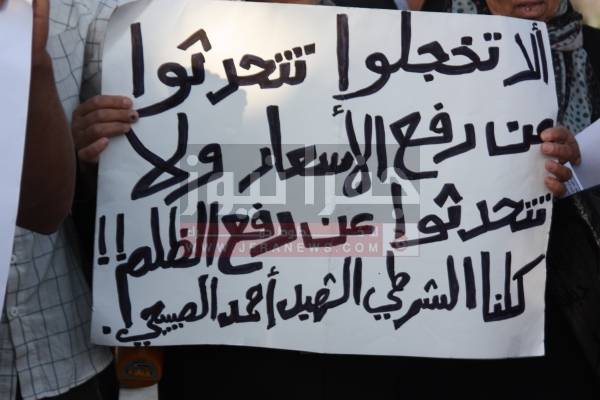 ألا تخجلوا تتحدثوا
عن رفع الأسعار ولا
تتحدثوا عن رفع الظلم!!
كلنا الشرطي الشهيد أحمد الصبيحي!
جراءة نيوز
WWW.JERANEWS.COM